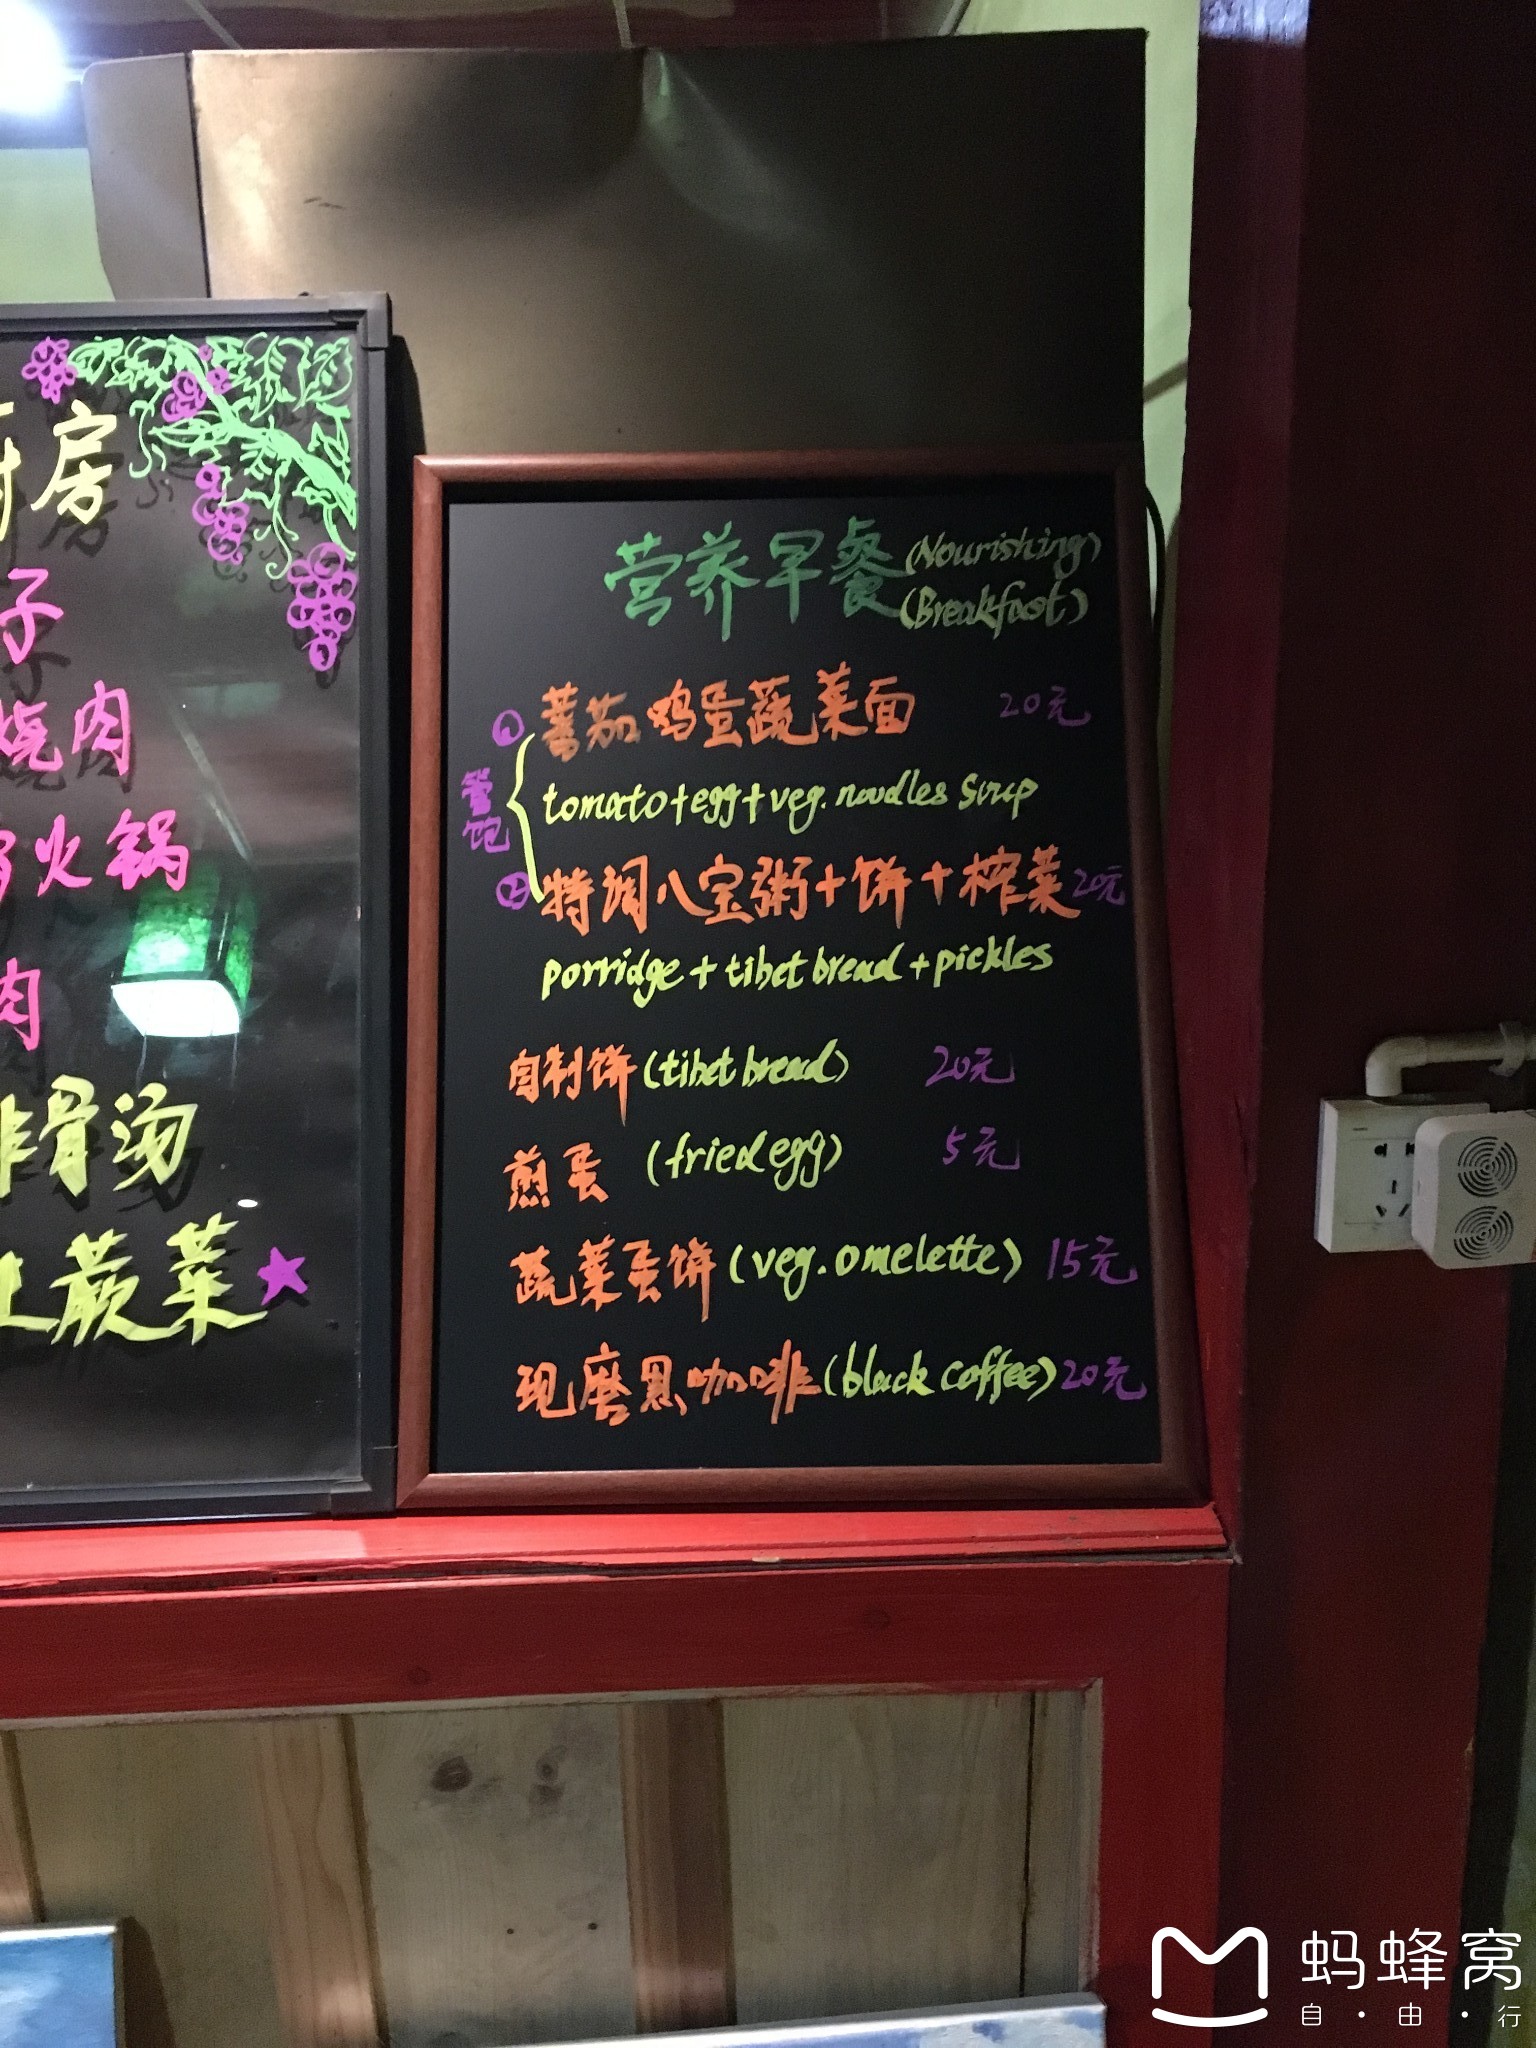 房
子
烧肉
火锅
肉
排骨汤
土蕨菜
营养早餐(Nourishing)
(Breakfast)
① 蕃茄鸡蛋蔬菜面 20元
管饱
tomato+egg+veg. noodles soup
② 特润八宝粥+饼+榨菜 20元
porridge + tibet bread + pickles
自制饼(tibet bread) 20元
煎蛋 (fried egg) 5元
蔬菜蛋饼(veg. omelette) 15元
现磨黑咖啡(black coffee) 20元
蚂蜂窝
自·由·行